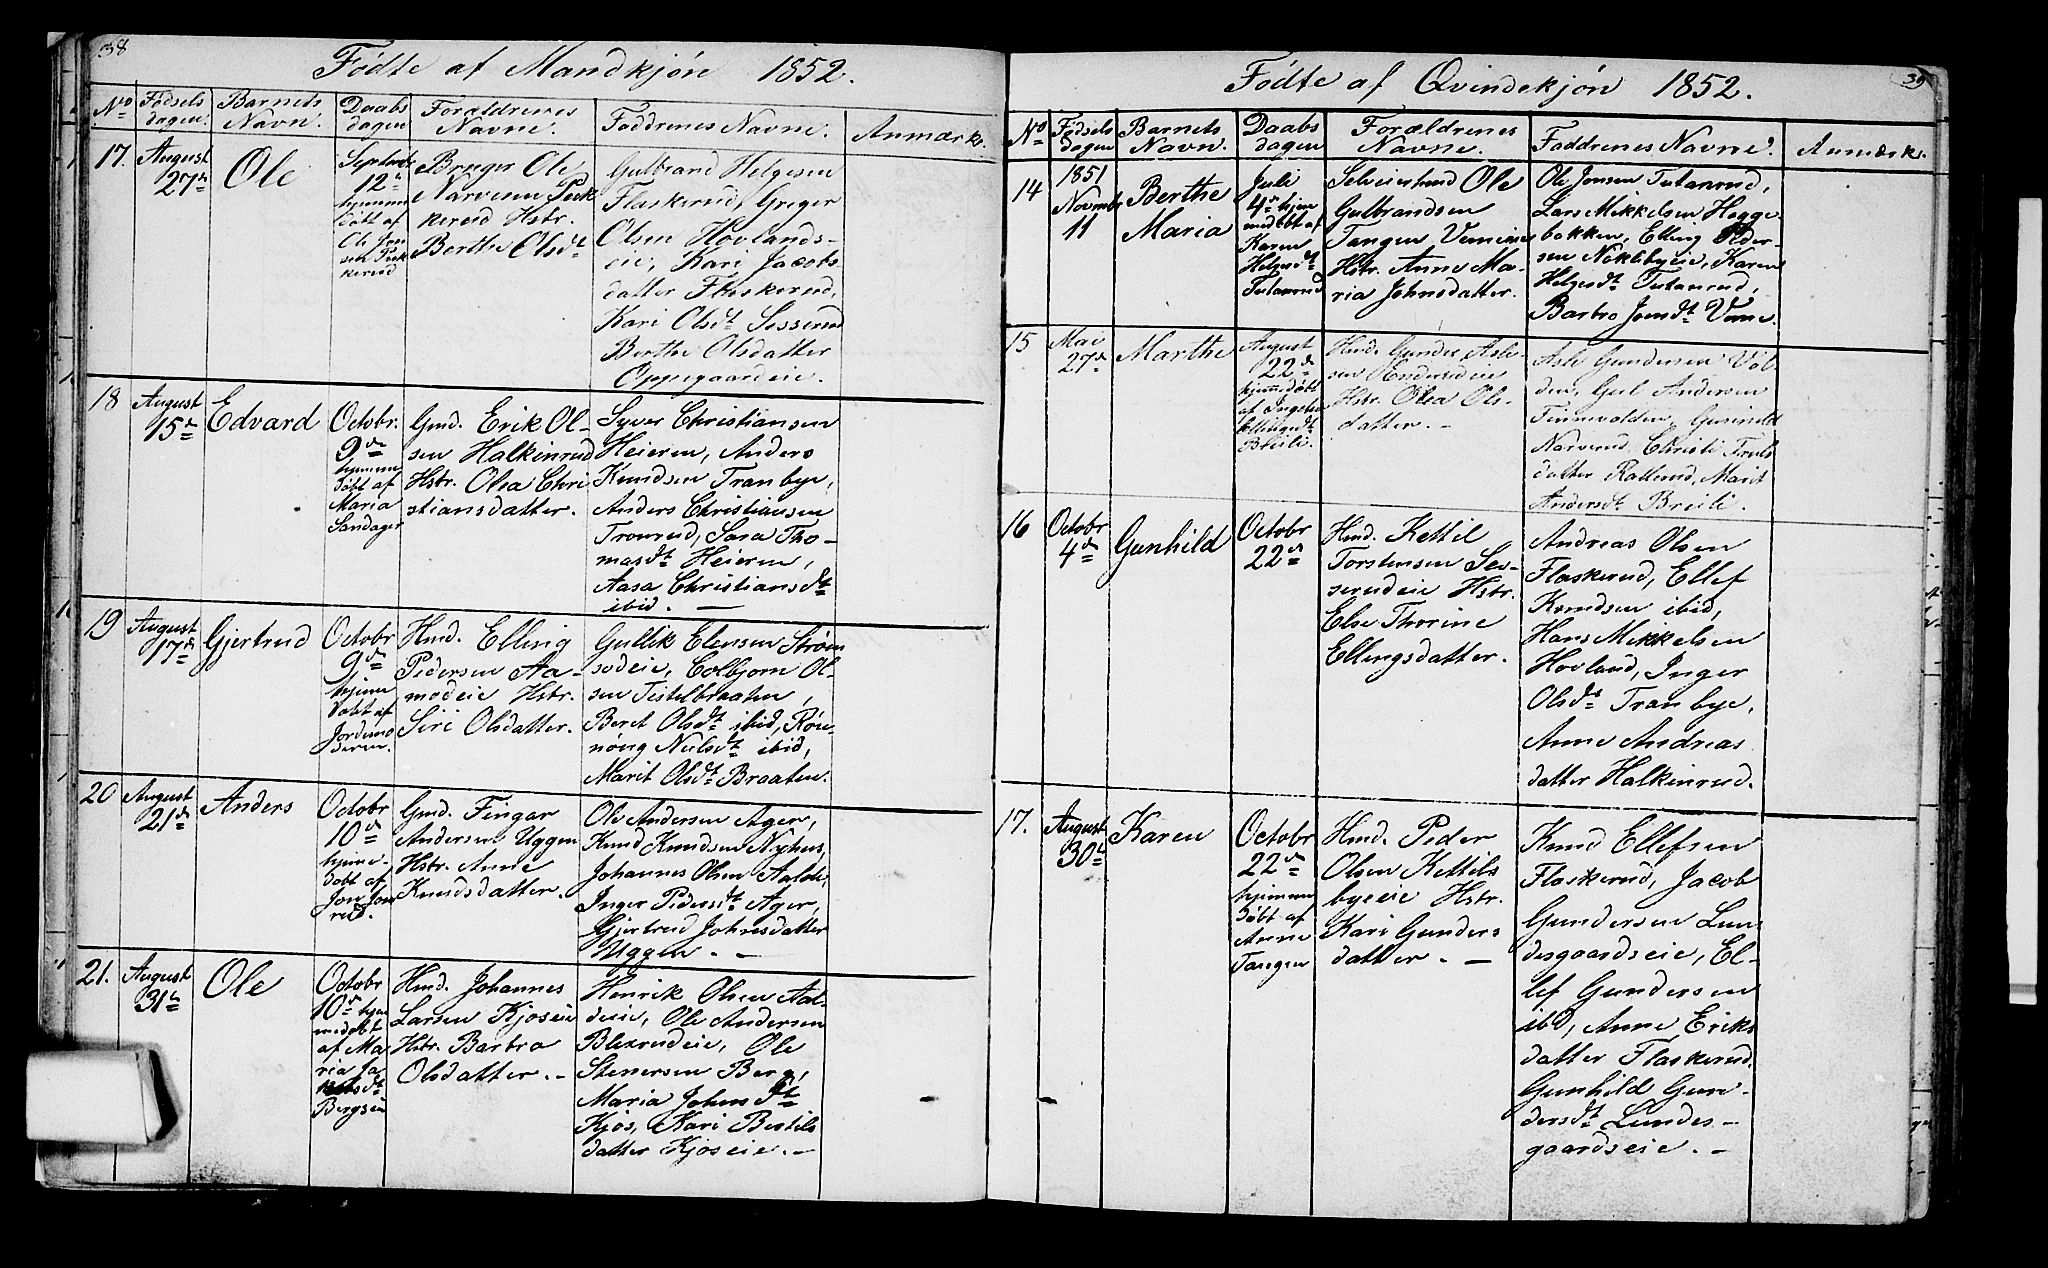 38
Fødte af Mandkjøn 1852.
No
Fødsels
dagen.
Barnets
Navn.
Daabs
dagen
Forældrenes
Navne.
Faddrenes Navne.
Anmærk.
17.
August
27de
Ole
Septembr
12te
hjemme
døbt af
Ole
kerud
Ole
Narvesen
kerud Hstr.
Berthe Olsdt
Gulbrand Helgesen
Flaskerud, Greger
Olsen Hovlands-
eie, Kari Jacobs
datter Flaskerud,
Kari Olsdt Sesserud
Berthe Olsdatter
Oppegaardeie.
18
August
15de
Edvard
Octobr.
9de
hjemme
døbt af
Maria
Sandager
Gmd. Erik Ol-
sen Halkinrud
Hstr. Olea Chri
stiansdatter.
Syver Christiansen
Heieren, Anders
Knudsen Tranbye,
Anders Christiansen
Tronrud, Sara Tho-
masdt Heieren,
Aasa Christiansdt
ibid. —
19
August
17de
Gjertrud
Octobr
9de
hjem
døbt af
Jordmo
deren.
Hmd. Elling
Pedersen Aa-
modeie Hstr.
Siri Olsdatter.
Gullik Elensen Strøm
sodeie, Colbjørn Ol-
sen Tistelbraaten,
Beret Olsdt ibid, Røn-
nøug Nielsdt ibid,
Marit Olsdt Braaten.
20
August
21de
Anders
Octobr
10de
hjeme-
døbt af
Jon Jon
rud.
Gmd. Fingar
Andersen Uggen
Hstr. Anne
Knudsdatter.
Ole Andersen Ager,
Knud Knudsen Nyhus,
Johannes Olsen Aalde,
Inger Pedersdt Ager,
Gjertrud Johnsdatter
Uggen. —
21.
August
31te
Ole
Octobr
10de hjem
medøbt
af Ma
ria Ja
Bergseie
Hmd. Johannes
Larsen Kjoseie
Hstr. Barbro
Olsdatter. —
Henrik Olsen Aal-
deie, Ole Andersen
Blexrudeie, Ole
Stenersen Berg,
Maria Johnsdt
Kjos, Kari Bertils
datter Kjoseie. —
39
Fødte af Qvindekjøn 1852.
No
Fødsels
dagen
Barnets
Navn.
Daabs
dagen
Forældrenes
Navne.
Faddrenes Navne.
Anmærk.
14
1851
Novmbr
11
Berthe
Maria
Juli
4de hjem
medøbt af
Karen
Helgesdt
Tutanrud
Selveierhmd Ole
Gulbrandsen
Tangen
Hstr. Anne Ma-
ria Johnsdatter.
Ole Jonsen Tutanrud,
Lars Mikkelsen Hegge
bakken, Elling Peder-
sen Nøklebyeie, Karen
Helgesdt Tutanrud,
Barbro Jonsdt
15
Mai
27de
Marthe
August
22de
hjemmedøbt
af Ingeborg
Breili.
Hmd. Gunder Asle-
sen Enderudeie
Hstr. Olea Ols-
datter. —
Asle Gundersen Vol-
den, Gul Andersen
Finnvolden, Gunild
Narverud, Christi Truls
datter Rallerud, Marit
Andersdt Breili.
16
Octobr
4de
Gunhild
Octobr
22de
Hmd. Kettil
Torstensen Ses-
serudeie Hstr.
Else Thorine
Ellingsdatter.
Andreas Olsen
Flaskerud, Ellef
Knudsen ibid,
Hans Mikkelsen
Hovland, Inger
Olsdt Tranbye,
Anne Andreas
datter Halkinrud.
17.
August
30te
Karen
Octobr
22de
hjemme
døbt af
Anne
Tangen
Hmd. Peder
Olsen Kettils
byeeie Hstr.
Kari Gunders
datter. —
Knud Ellefsen
Flaskerud, Jacob
Gundersen Lun
desgaardseie, El-
lef Gundersen
ibd, Anne Eriks
datter Flaskerud.
Gunhild Gun-
dersdt Lundes-
gaardseie. —